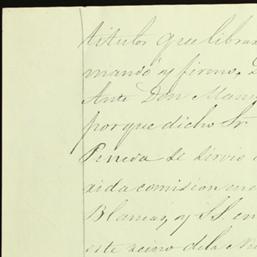 titulos que libra
mandó y firmo,
Ante Don Man
por que dicho Sr
Pineda se sirvio
comision
Blancas, y SS. en
este reino de la Nu